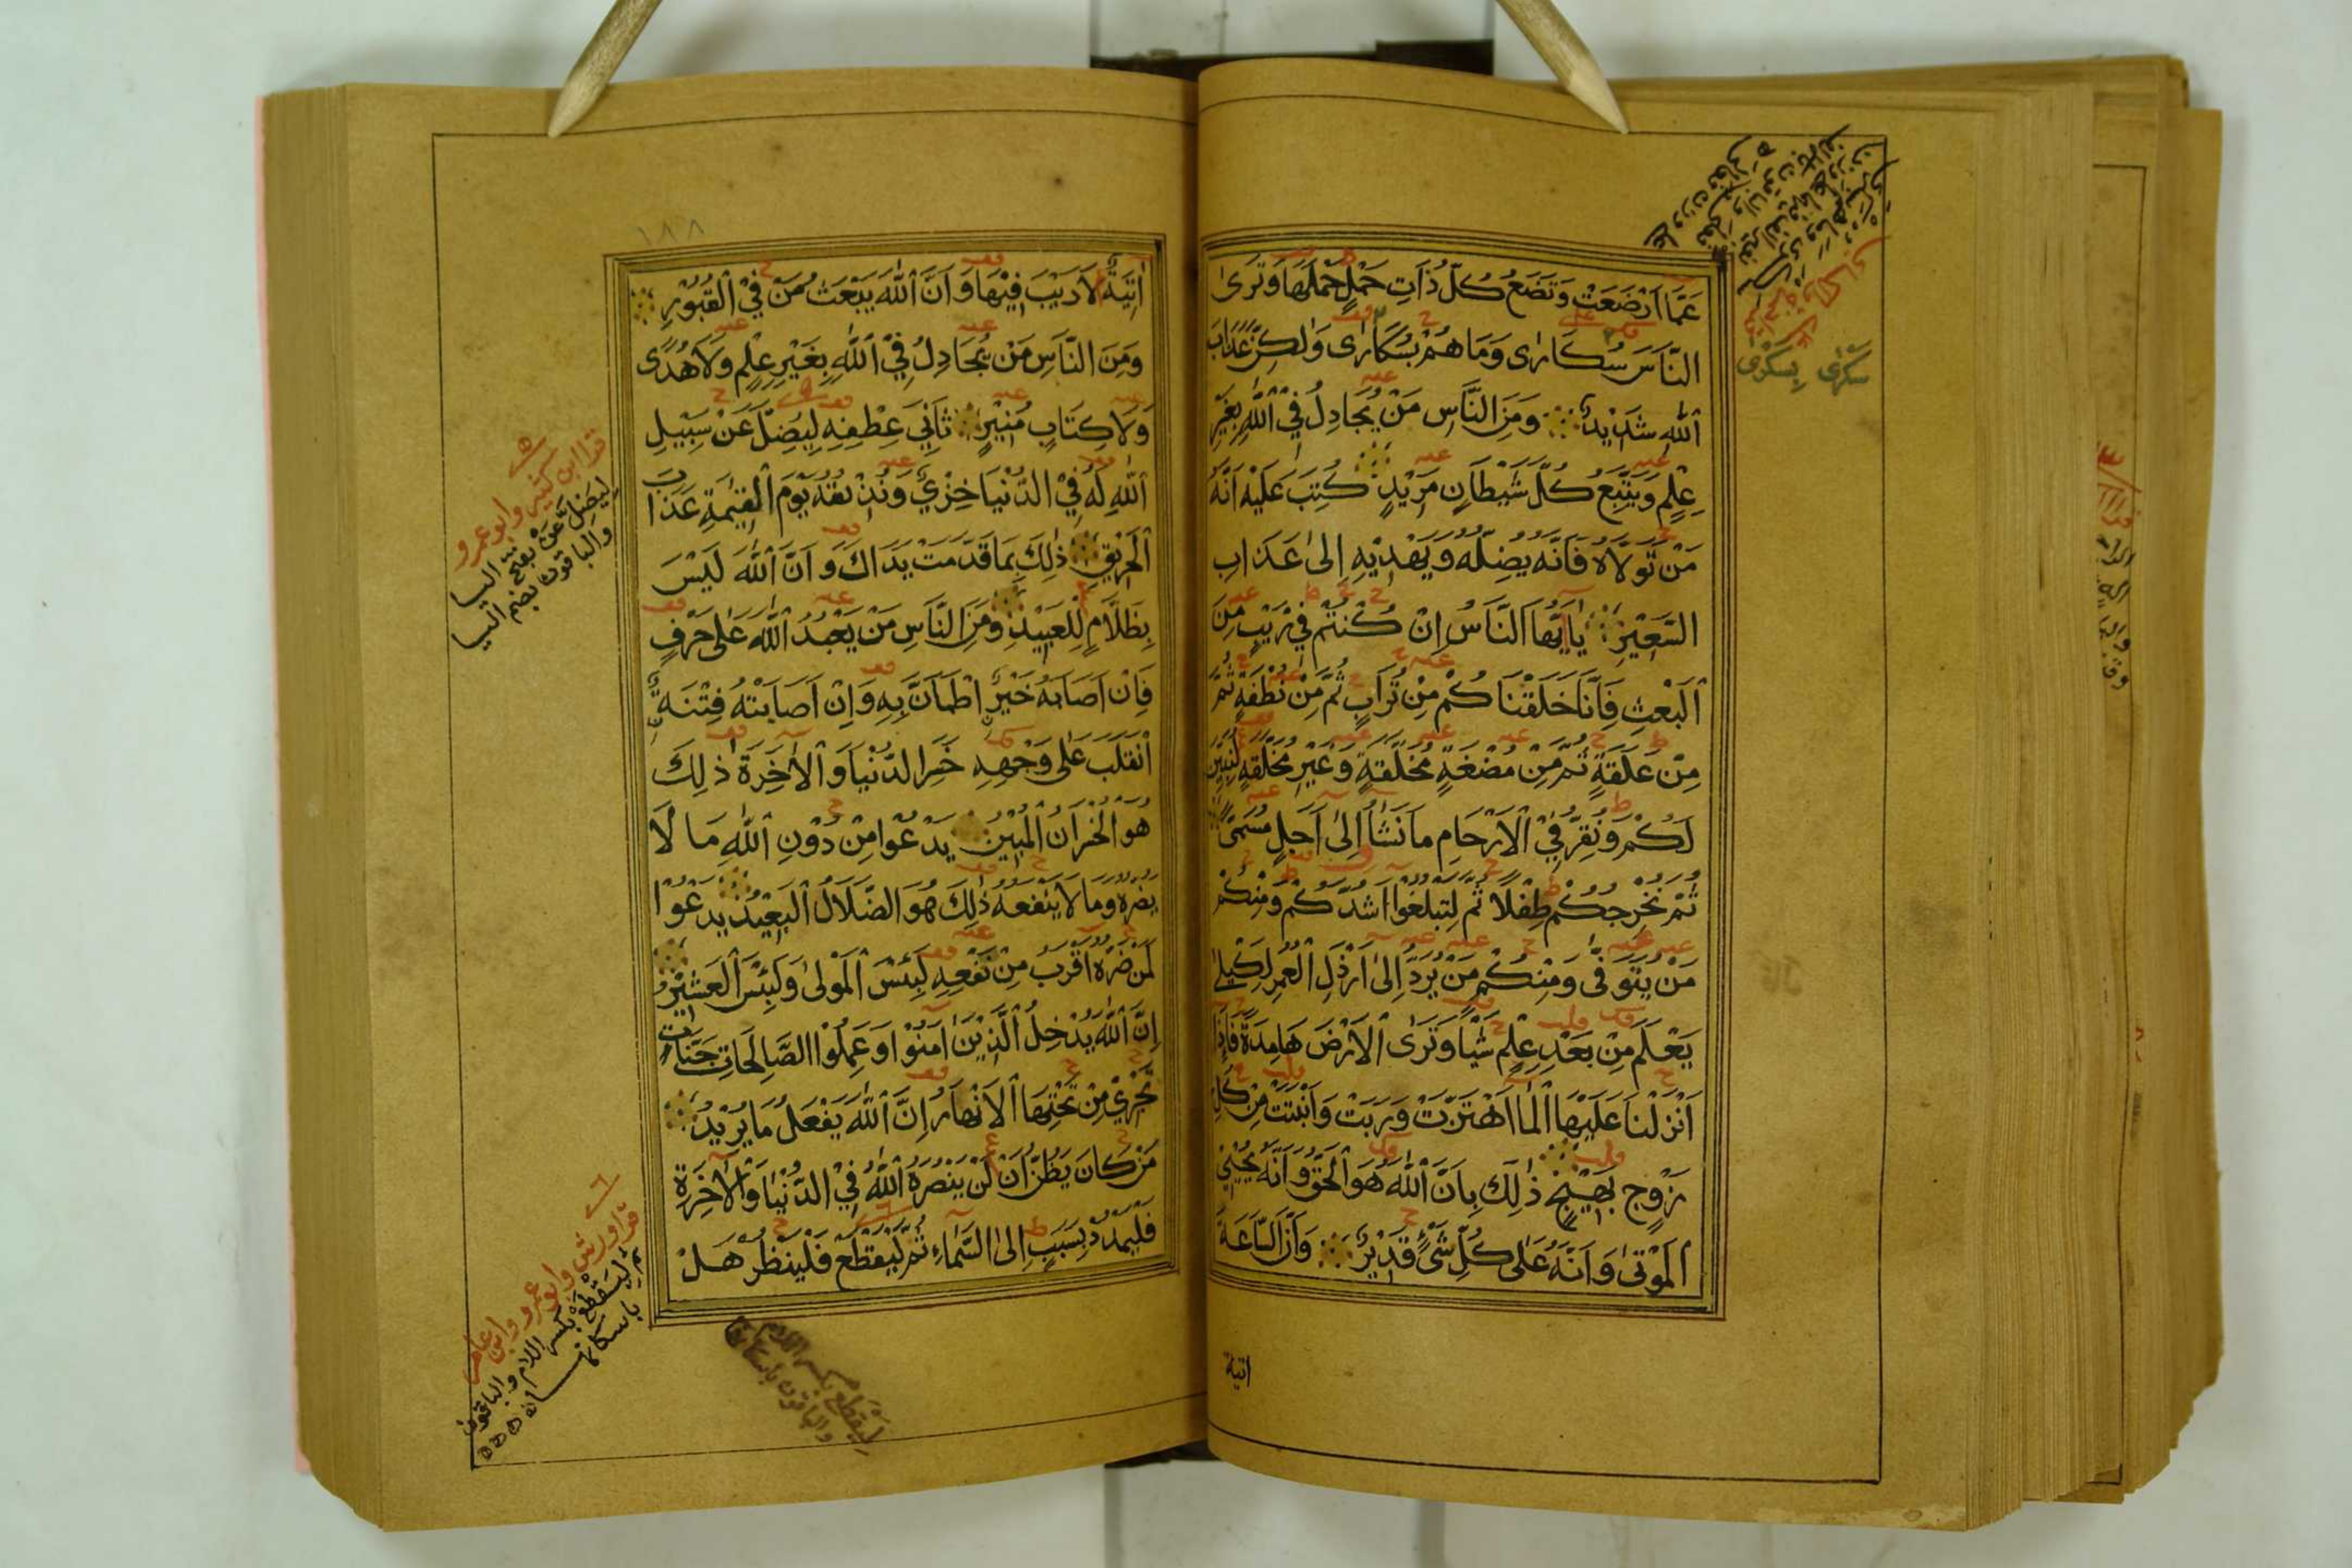 عَمَّا اَرْضَعَتْ وَتَضَعُ كُلُّ ذَاتِ حَمْلٍ حَمْلَهَا وَتَرَى
النَّاسَ سُكَارٰى وَمَا هُمْ بِسُكَارٰى وَلٰكِنَّ عَذَابَ
اللّٰهِ شَدِيْدٌ وَمِنَ النَّاسِ مَنْ يُجَادِلُ فِي اللّٰهِ بِغَيْرِ
عِلْمٍ وَيَتَّبِعُ كُلَّ شَيْطَانٍ مَرِيْدٍ كُتِبَ عَلَيْهِ اَنَّهُ
مَنْ تَوَلَّاهُ فَاَنَّهُ يُضِلُّهُ وَيَهْدِيْهِ اِلىٰ عَذَابِ
السَّعِيْرِ يَااَيُّهَا النَّاسُ اِنْ كُنْتُمْ فِي رَيْبٍ مِنَ
الْبَعْثِ فَاِنَّا خَلَقْنَاكُمْ مِنْ تُرَابٍ ثُمَّ مِنْ نُطْفَةٍ ثُمَّ
مِنْ عَلَقَةٍ ثُمَّ مِنْ مُضْغَةٍ مُخَلَّقَةٍ وَغَيْرِ مُخَلَّقَةٍ لِنُبَيِّنَ
لَكُمْ وَنُقِرُّ فِي الْاَرْحَامِ مَا نَشَاُ اِلىٰ اَجَلٍ مُسَمًّى
ثُمَّ نُخْرِجُكُمْ طِفْلًا ثُمَّ لِتَبْلُغُوْا اَشُدَّكُمْ وَمِنْكُمْ
مَنْ يُتَوَفّٰى وَمِنْكُمْ مَنْ يُرَدُّ اِلىٰ اَرْذَلِ الْعُمُرِ لِكَيْلَا
يَعْلَمَ مِنْ بَعْدِ عِلْمٍ شَيْـًٔا وَتَرَى الْاَرْضَ هَامِدَةً فَاِذَا
اَنْزَلْنَا عَلَيْهَا الْمَا اَهْتَزَّتْ وَرَبَتْ وَاَنْبَتَتْ مِنْ كُلِّ
زَوْجٍ بَهِيْجٍ ذٰلِكَ بِاَنَّ اللّٰهَ هُوَ الْحَقُّ وَاَنَّهُ يُحْيِي
الْمَوْتىٰ وَاَنَّهُ عَلىٰ كُلِّ شَيْءٍ قَدِيْرٌ وَاَنَّ السَّاعَةَ
اتية
سَكْرٰى بِسَكْرٰى
١٨٨
اٰتِيَةٌ لَا رَيْبَ فِيْهَا وَاَنَّ اللّٰهَ يَبْعَثُ مَنْ فِي الْقُبُوْرِ
وَمِنَ النَّاسِ مَنْ يُجَادِلُ فِي اللّٰهِ بِغَيْرِ عِلْمٍ وَلَا هُدًى
وَلَا كِتَابٍ مُنِيْرٍ ثَانِيَ عِطْفِهِ لِيُضِلَّ عَنْ سَبِيْلِ
اللّٰهِ لَهُ فِي الدُّنْيَا خِزْيٌ وَنُذِيْقُهُ يَوْمَ الْقِيٰمَةِ عَذَابَ
الْحَرِيْقِ ذٰلِكَ بِمَا قَدَّمَتْ يَدَاكَ وَاَنَّ اللّٰهَ لَيْسَ
بِظَلَّامٍ لِلْعَبِيْدِ وَمِنَ النَّاسِ مَنْ يَعْبُدُ اللّٰهَ عَلىٰ حَرْفٍ
فَاِنْ اَصَابَهُ خَيْرٌ اطْمَاَنَّ بِهِ وَاِنْ اَصَابَتْهُ فِتْنَةٌ
انْقَلَبَ عَلىٰ وَجْهِهِ خَسِرَ الدُّنْيَا وَالْاٰخِرَةَ ذٰلِكَ
هُوَ الْخُسْرَانُ الْمُبِيْنُ يَدْعُوْا مِنْ دُوْنِ اللّٰهِ مَا لَا
يَضُرُّهُ وَمَا لَا يَنْفَعُهُ ذٰلِكَ هُوَ الضَّلَالُ الْبَعِيْدُ يَدْعُوْا
لَمَنْ ضَرُّهُ اَقْرَبُ مِنْ نَفْعِهِ لَبِئْسَ الْمَوْلىٰ وَلَبِئْسَ الْعَشِيْرُ
اِنَّ اللّٰهَ يُدْخِلُ الَّذِيْنَ اٰمَنُوْا وَعَمِلُوا الصَّالِحَاتِ جَنَّاتٍ
تَجْرِيْ مِنْ تَحْتِهَا الْاَنْهَارُ اِنَّ اللّٰهَ يَفْعَلُ مَا يُرِيْدُ
مَنْ كَانَ يَظُنُّ اَنْ لَنْ يَنْصُرَهُ اللّٰهُ فِي الدُّنْيَا وَالْاٰخِرَةِ
فَلْيَمْدُدْ بِسَبَبٍ اِلَى السَّمَاءِ ثُمَّ لْيَقْطَعْ فَلْيَنْظُرْ هَلْ
قرا ابن كثير وابو عمرو
لِيَضِلَّ عَنْ بفتح اليا
والباقون بضم اليا
قرا ورش وابو عمرو وابن عامر
ثم لِيَقْطَعْ بكسر اللام والباقون
باسكانها
لِيَقْطَعْ بكسر اللام
والباقون باسكانها